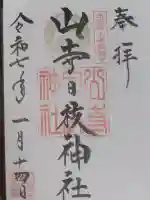 奉拝
山寺日枝神社
令和七年一月十四日